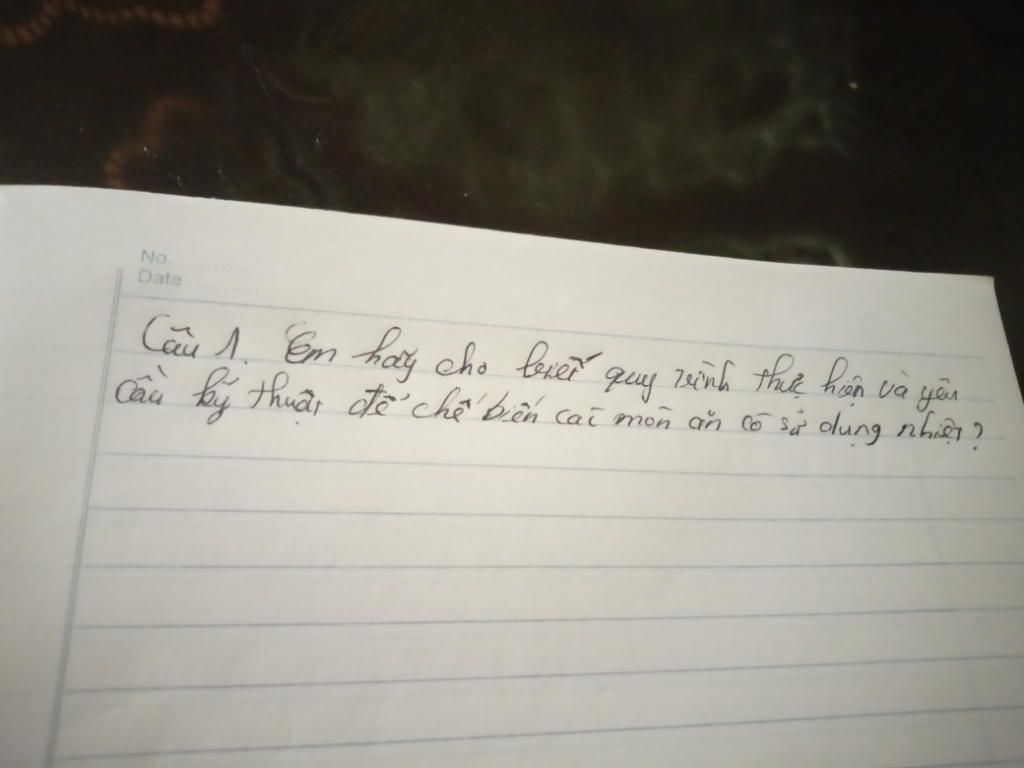 No.
Date
Câu 1. Em hãy cho biết quy trình thực hiện và yêu
cầu kỹ thuật để chế biến các món ăn có sử dụng nhiệt?